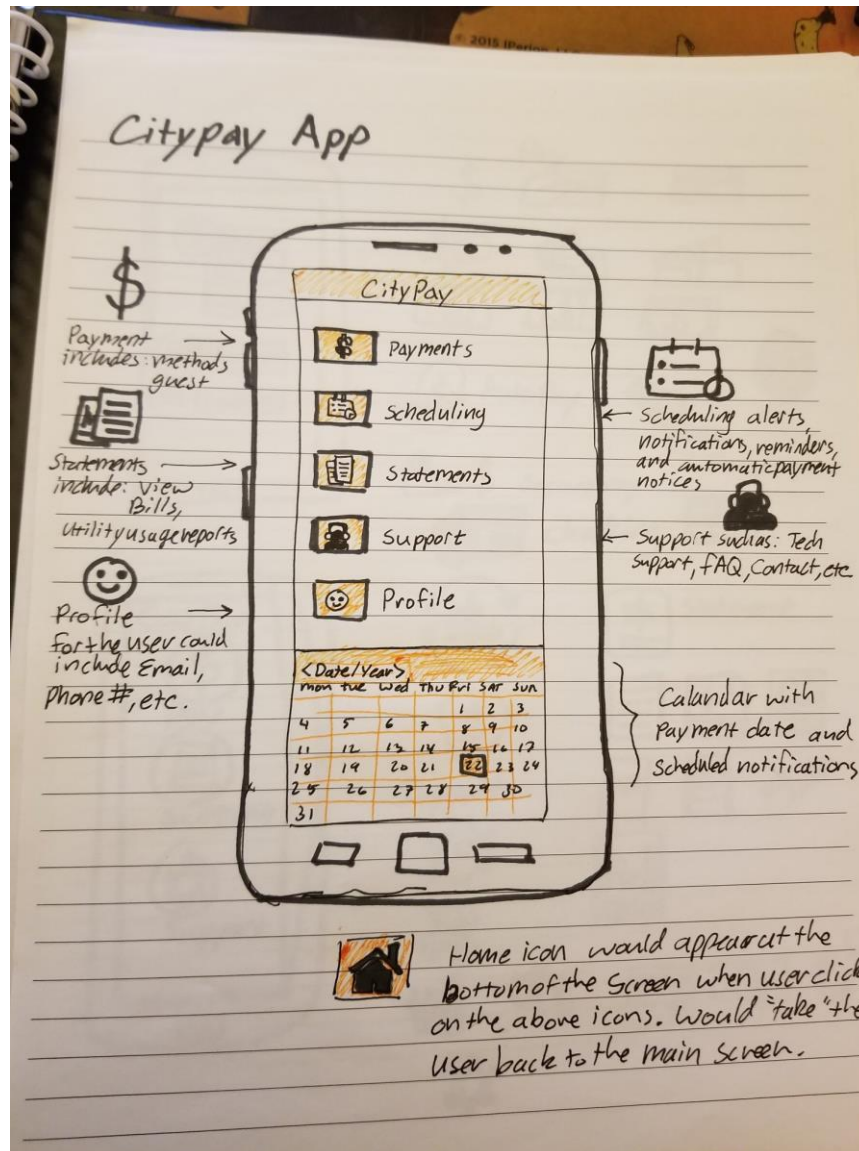 © 2015
Citypay App
$
Payment
includes: methods
guest
Statements
include: View
Bills,
utility usage reports
Profile
for the user could
include Email,
Phone #, etc.
CityPay
$ Payments
Scheduling
Statements
Support
Profile
<Date/Year>
mon tue wed Thu Fri SAT SUN
1 2 3
4 5 6 7 8 9 10
11 12 13 14 15 16 17
18 19 20 21 22 23 24
25 26 27 28 29 30
31
Scheduling alerts,
notifications, reminders,
and automatic payment
notices
Support such as: Tech
Support, FAQ, Contact, etc
Calandar with
Payment date and
Scheduled notifications
Home icon would appear at the
bottom of the screen when user click
on the above icons. Would "take" the
user back to the main screen.